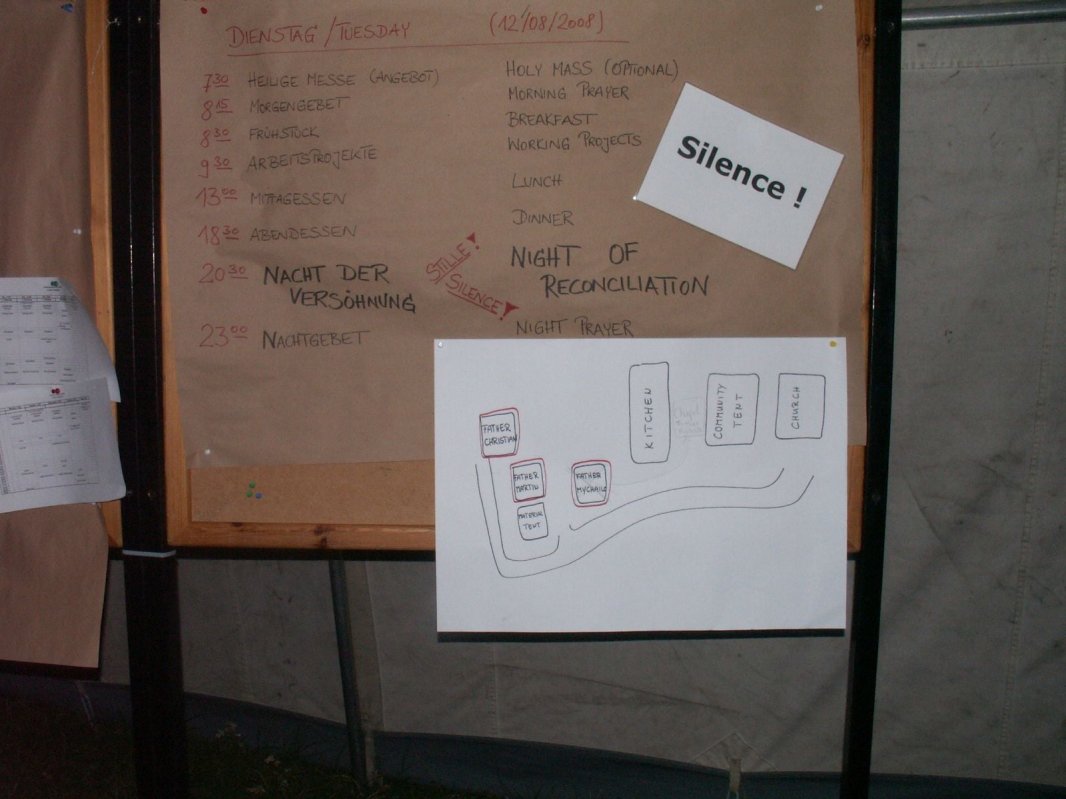 DIENSTAG/TUESDAY (12/08/2008)
7 30 HEILIGE MESSE (ANGEBOT) HOLY MASS (OPTIONAL)
8 15 MORGENGEBET MORNING PRAYER
8 30 FRÜHSTÜCK BREAKFAST
9 30 ARBEITSPROJEKTE WORKING PROJECTS
13 00 MITTAGESSEN LUNCH
18 30 ABENDESSEN DINNER
20 30 NACHT DER VERSÖHNUNG
STILLE!
SILENCE!
NIGHT OF
RECONCILIATION
23 00 NACHTGEBET NIGHT PRAYER
Silence !
FATHER
CHRISTIAN
FATHER
MARTIN
MATERIAL
TENT
FATHER
MYCHAILO
KITCHEN
COMMUNITY
TENT
CHURCH